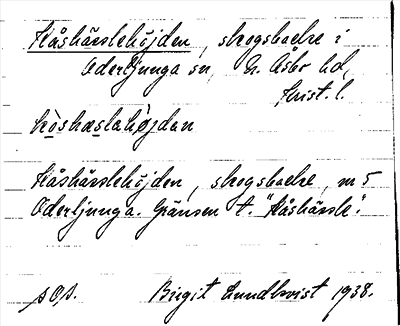 Kåshässlehöjden, skogsbacke i
Oderljunga sn, N. Åsbo hd,
Krist. l.
kòshæslahöjdan
Kåshässlehöjden, skogsbacke, m 5
Oderljunga. Gränsen t. "Kåshässle".
s. O. s. Birgit Lundkvist 1938.